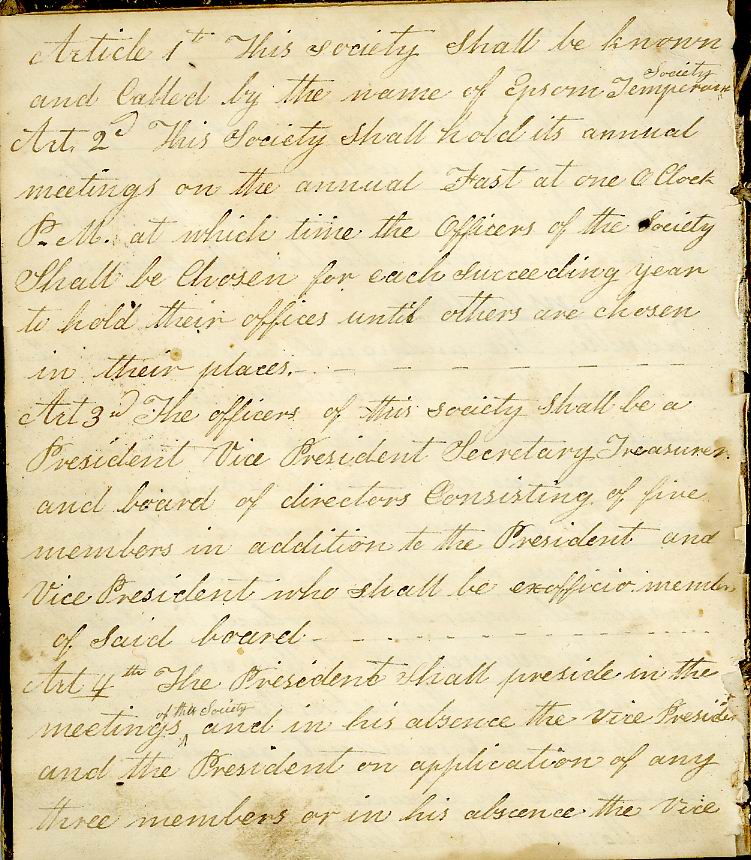 Article 1st This society shall be known
Society
and Called by the name of Epsom Temperance
Art. 2d This Society shall hold its annual
meetings on the annual Fast at one O Clock
P. M. at which time the Officers of the Society
Shall be Chosen for each succeeding year
to hold their offices until others are chosen
in their places. - - - - - - - - -
Art 3d The officers of this society shall be a
President Vice President Secretary Treasurer.
and board of directors Consisting of five
members in addition to the President and
Vice President who shall be exofficio memb
of said board - - - - - - - - - - -
Art 4th The President shall preside in the
of this Society
meetings ^ and in his absence the vice Presid
and the President on application of any
three members or in his abscence the Vice